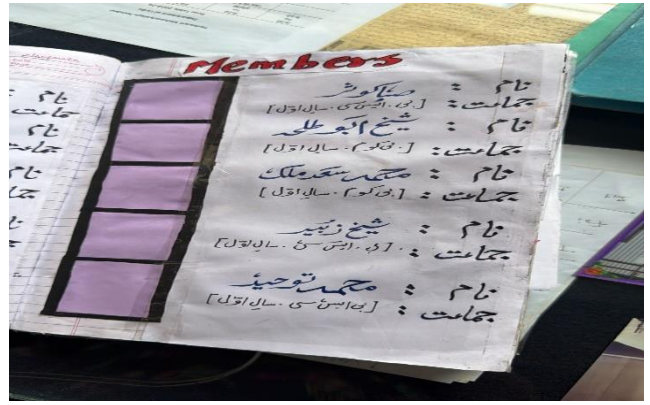 Members
نام : صبا کوثر
جماعت : [بی. ایس سی. سال اوّل]
نام : شیخ ابو طلحہ
جماعت : [بی کوم. سال اوّل]
نام : محمد سعد ملک
جماعت : [بی کوم. سال اوّل]
نام : شیخ زبیر
جماعت : [بی. ایس سی. سال اوّل]
نام : محمد توحید
جماعت : [بی ایس سی. سال اوّل]
نام
جماعت
نام